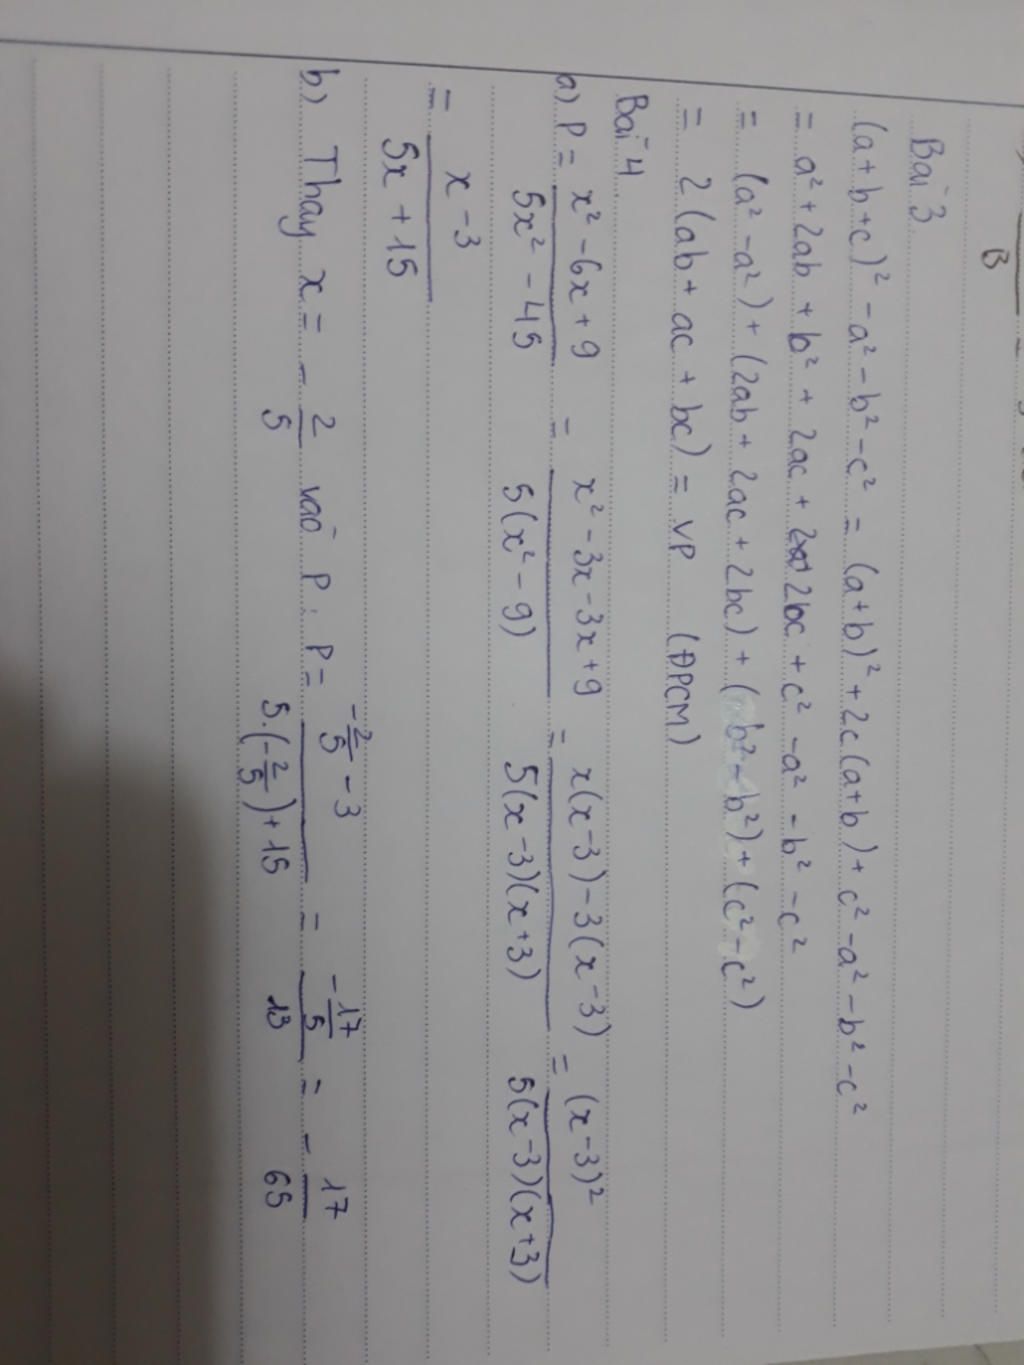 B
Bài 3
(a+b+c)² - a² - b² - c² = (a+b)² + 2c(a+b) + c² - a² - b² - c²
= a² + 2ab + b² + 2ac + 2bc + c² - a² - b² - c²
= (a² - a²) + (2ab + 2ac + 2bc) + (b² - b²) + (c² - c²)
= 2(ab + ac + bc) = VP (ĐPCM)
Bài 4
a) P = \frac{x² - 6x + 9}{5x² - 45} = \frac{x² - 3x - 3x + 9}{5(x² - 9)} = \frac{x(x-3) - 3(x-3)}{5(x-3)(x+3)} = \frac{(x-3)²}{5(x-3)(x+3)}
= \frac{x-3}{5x+15}
b) Thay x = -\frac{2}{5} vào P: P = \frac{-\frac{2}{5} - 3}{5.(-\frac{2}{5}) + 15} = \frac{-\frac{17}{5}}{13} = -\frac{17}{65}